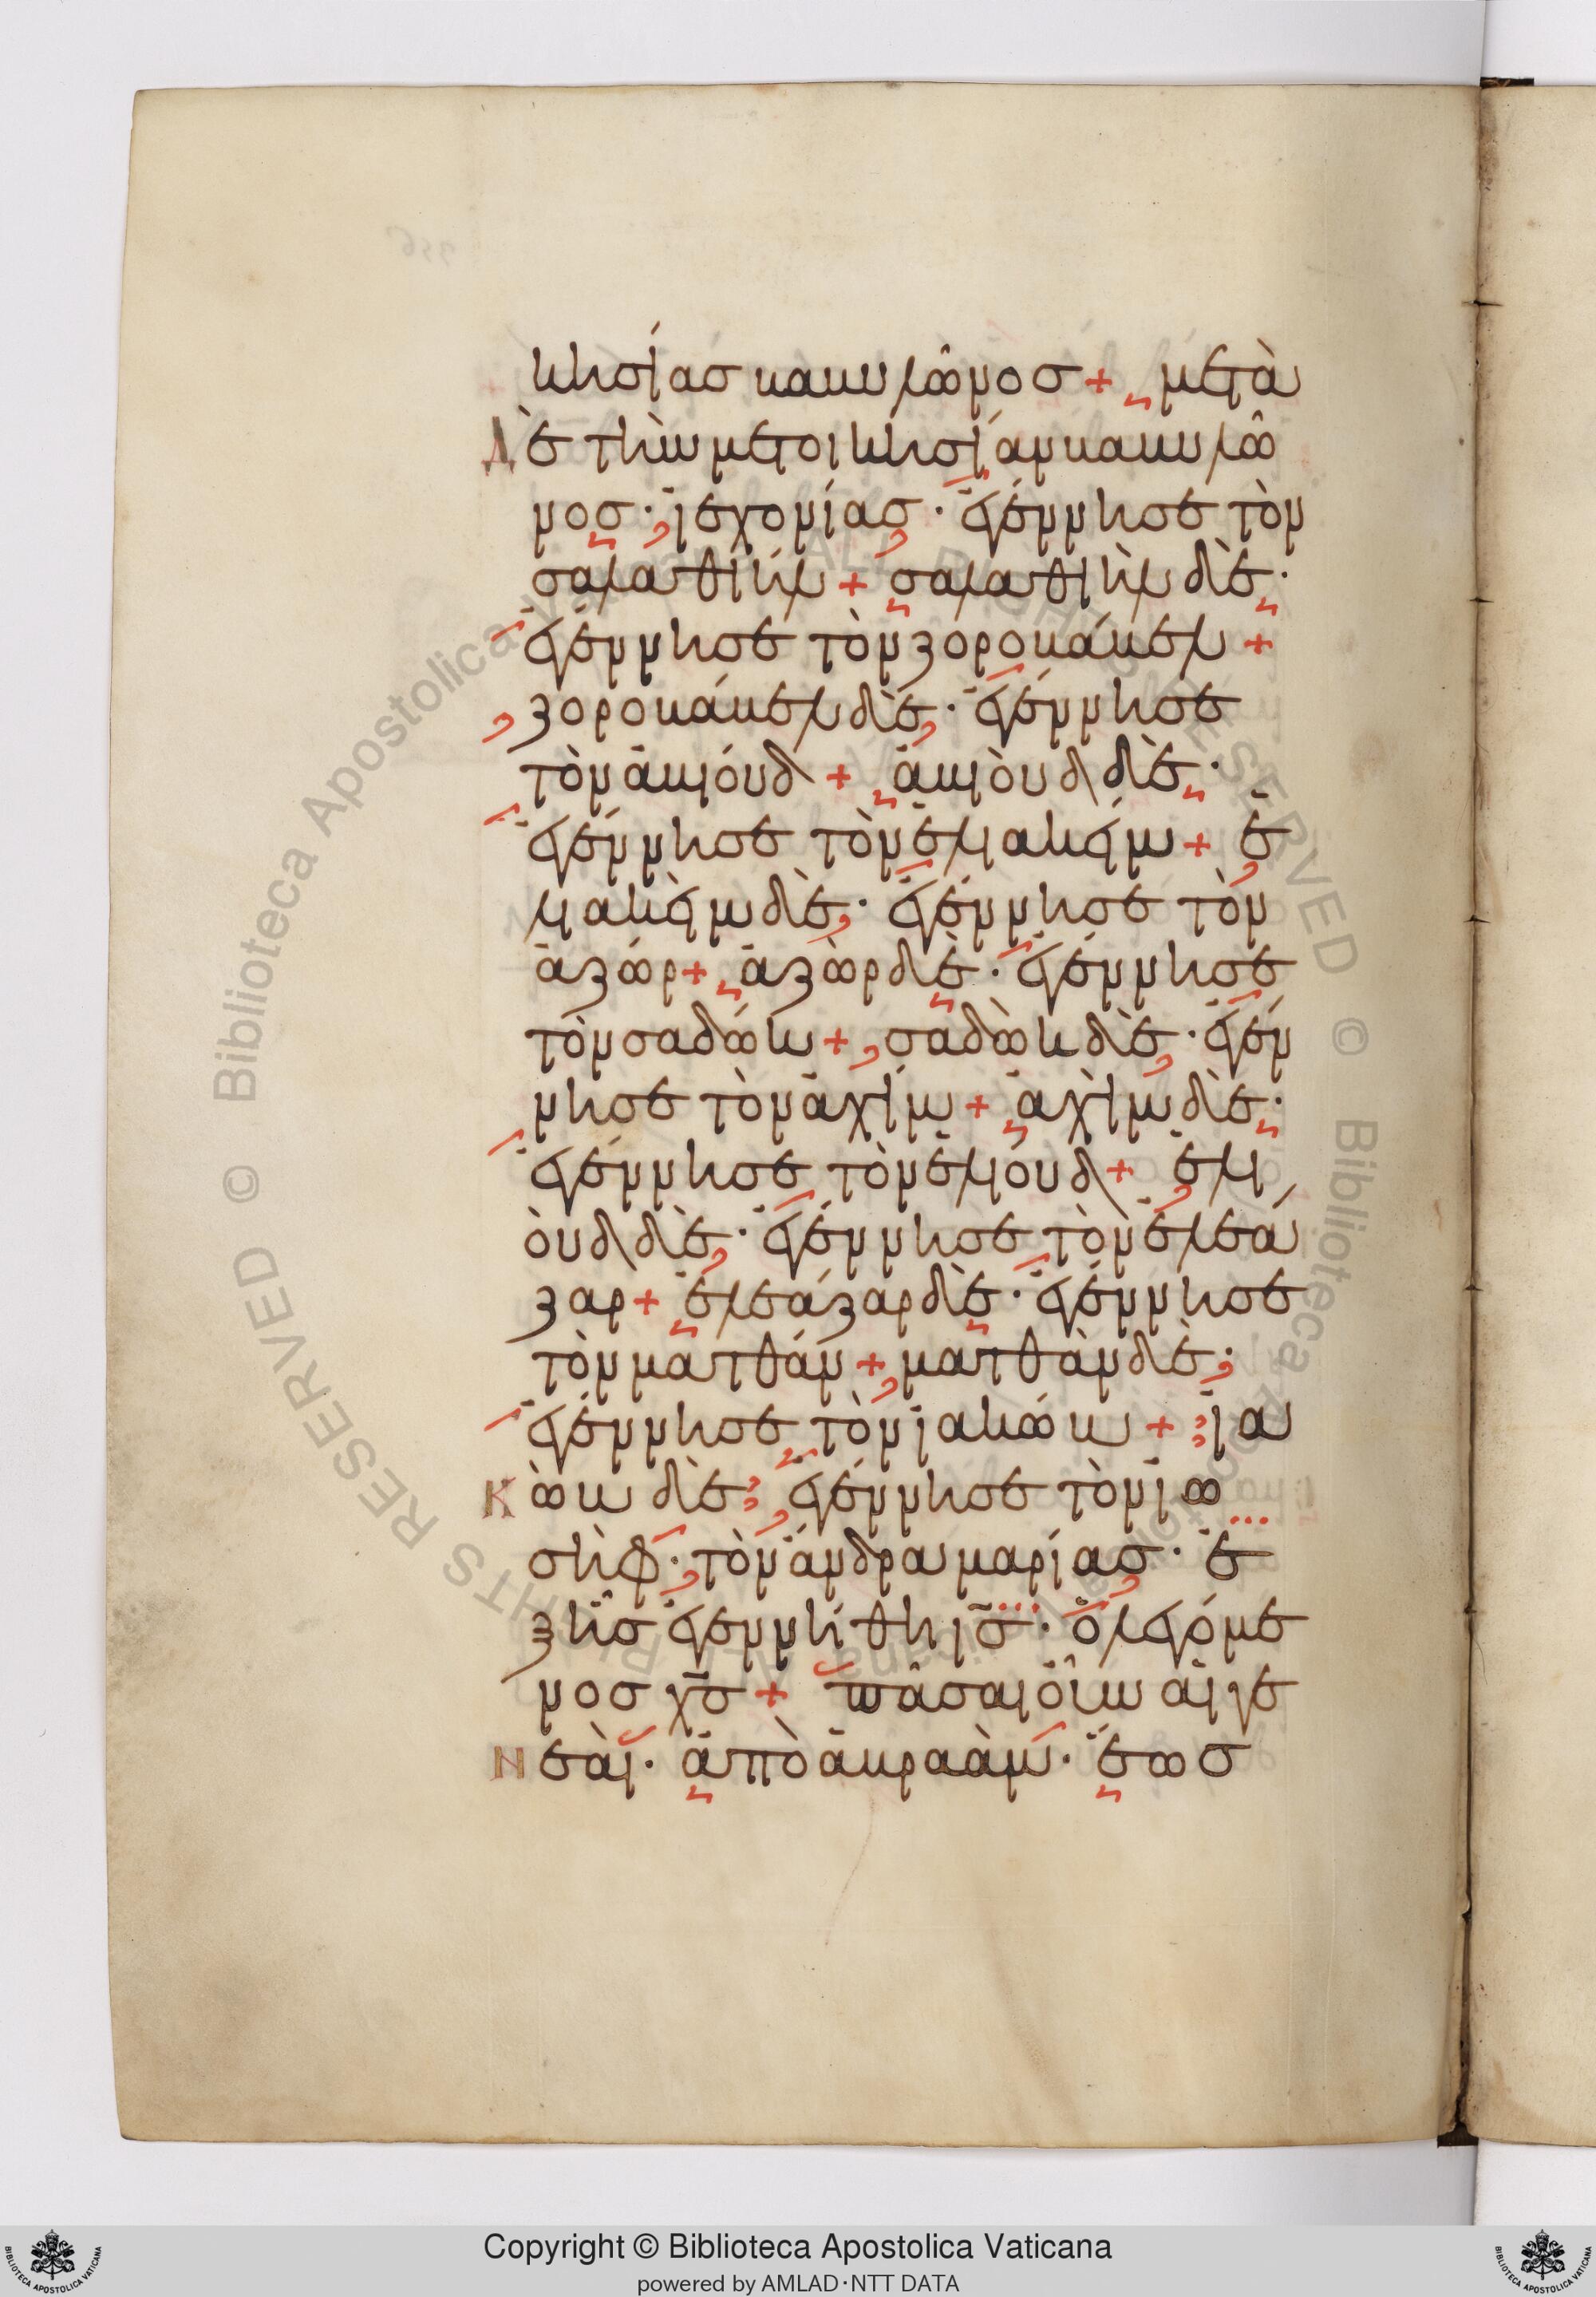 κησίας βαβυλῶνος + μετὰ
Δὲ τὴν μετοικησίαν βαβυλῶ
νος · ἰεχονίας · ἐγέννησε τὸν
σαλαθιήλ + σαλαθιὴλ δὲ ·
ἐγέννησε τὸν ζοροβάβελ +
ζοροβάβελ δὲ · ἐγέννησε
τὸν ἀβιούδ + ἀβιοὺδ δὲ ·
ἐγέννησε τὸν ἐλιακείμ + ἐ
λιακεὶμ δὲ · ἐγέννησε τὸν
ἀζώρ + ἀζὼρ δὲ · ἐγέννησε
τὸν σαδώκ + σαδὼκ δὲ · ἐγέν
νησε τὸν ἀχίμ + ἀχὶμ δὲ ·
ἐγέννησε τὸν ἐλιούδ + ἐλι
οὺδ δὲ · ἐγέννησε τὸν ἐλεά
ζαρ + ἐλεάζαρ δὲ · ἐγέννησε
τὸν ματθάν + ματθὰν δὲ ·
ἐγέννησε τὸν ἰακώβ + ἰα
Κὼβ δὲ ἐγέννησε τὸν ἰω
σὴφ · τὸν ἄνδρα μαρίας · ἐ
ξ ἧς ἐγεννήθη ις · ὁ λεγόμε
νος χς + πᾶσαι οὖν αἱ γε
Νεαὶ · ἀπὸ ἀβραὰμ · ἕως
Copyright © Biblioteca Apostolica Vaticana
powered by AMLAD·NTT DATA